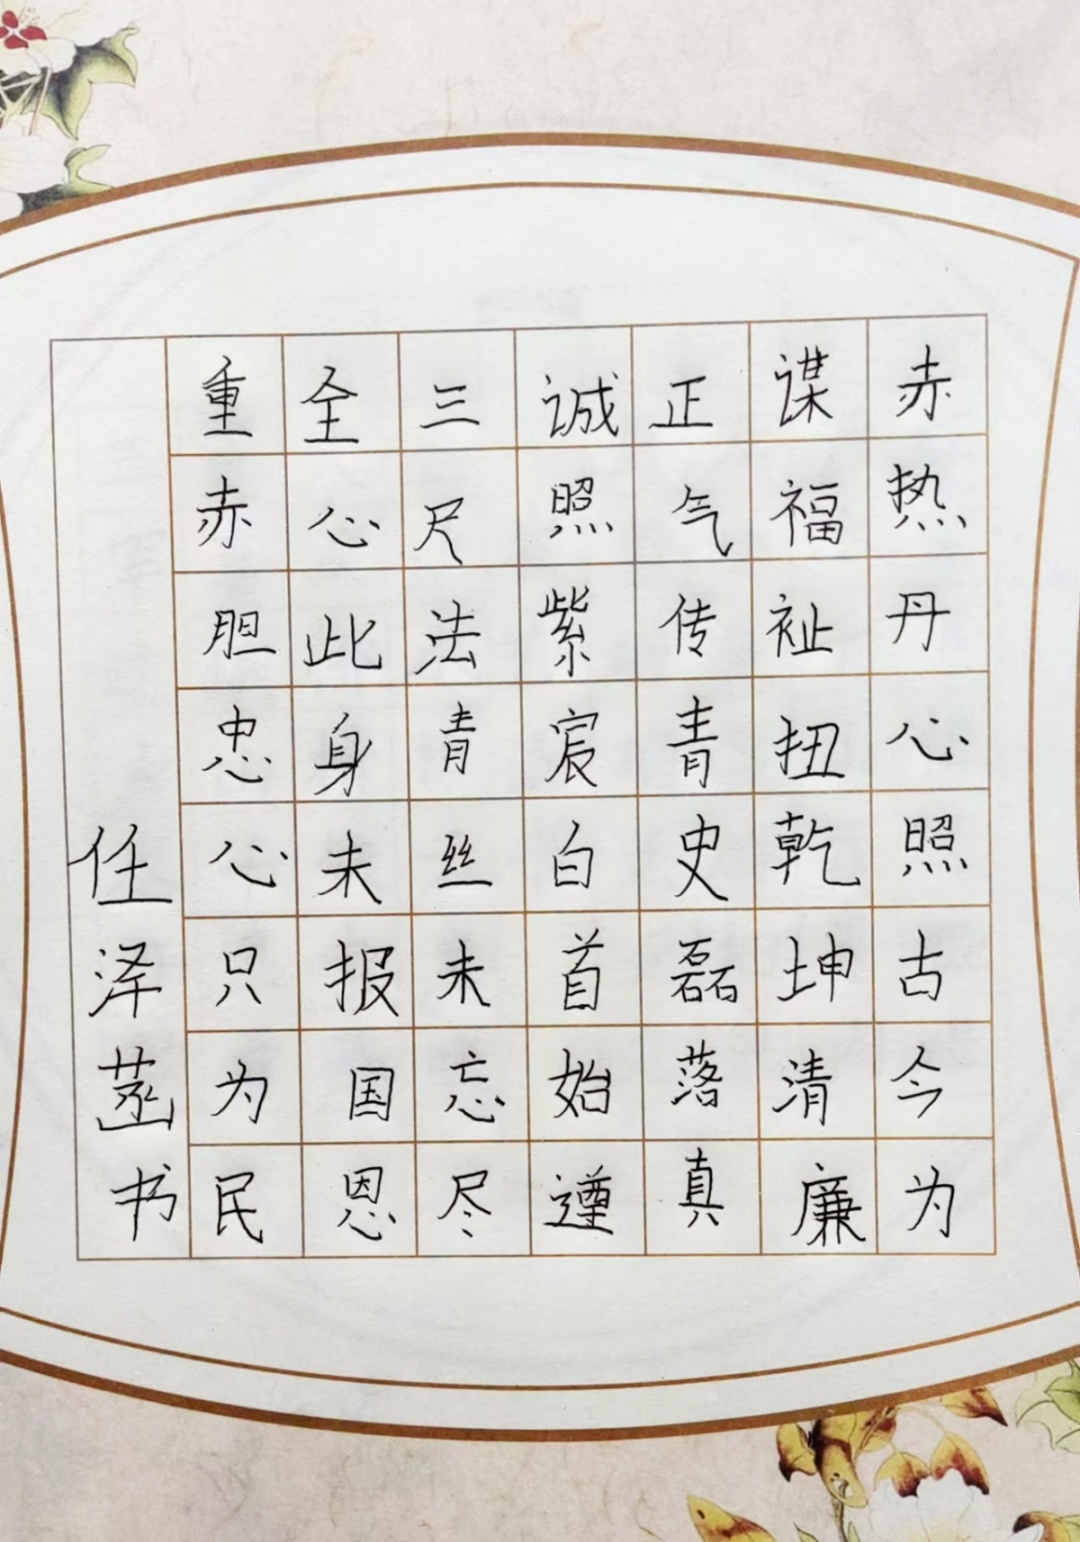 赤热丹心照古今为
谋福祉扭乾坤清廉
正气传青史磊落真
诚照紫宸白首始遵
三尺法青丝未忘尽
全心此身未报国恩
重赤胆忠心只为民
任泽菡书